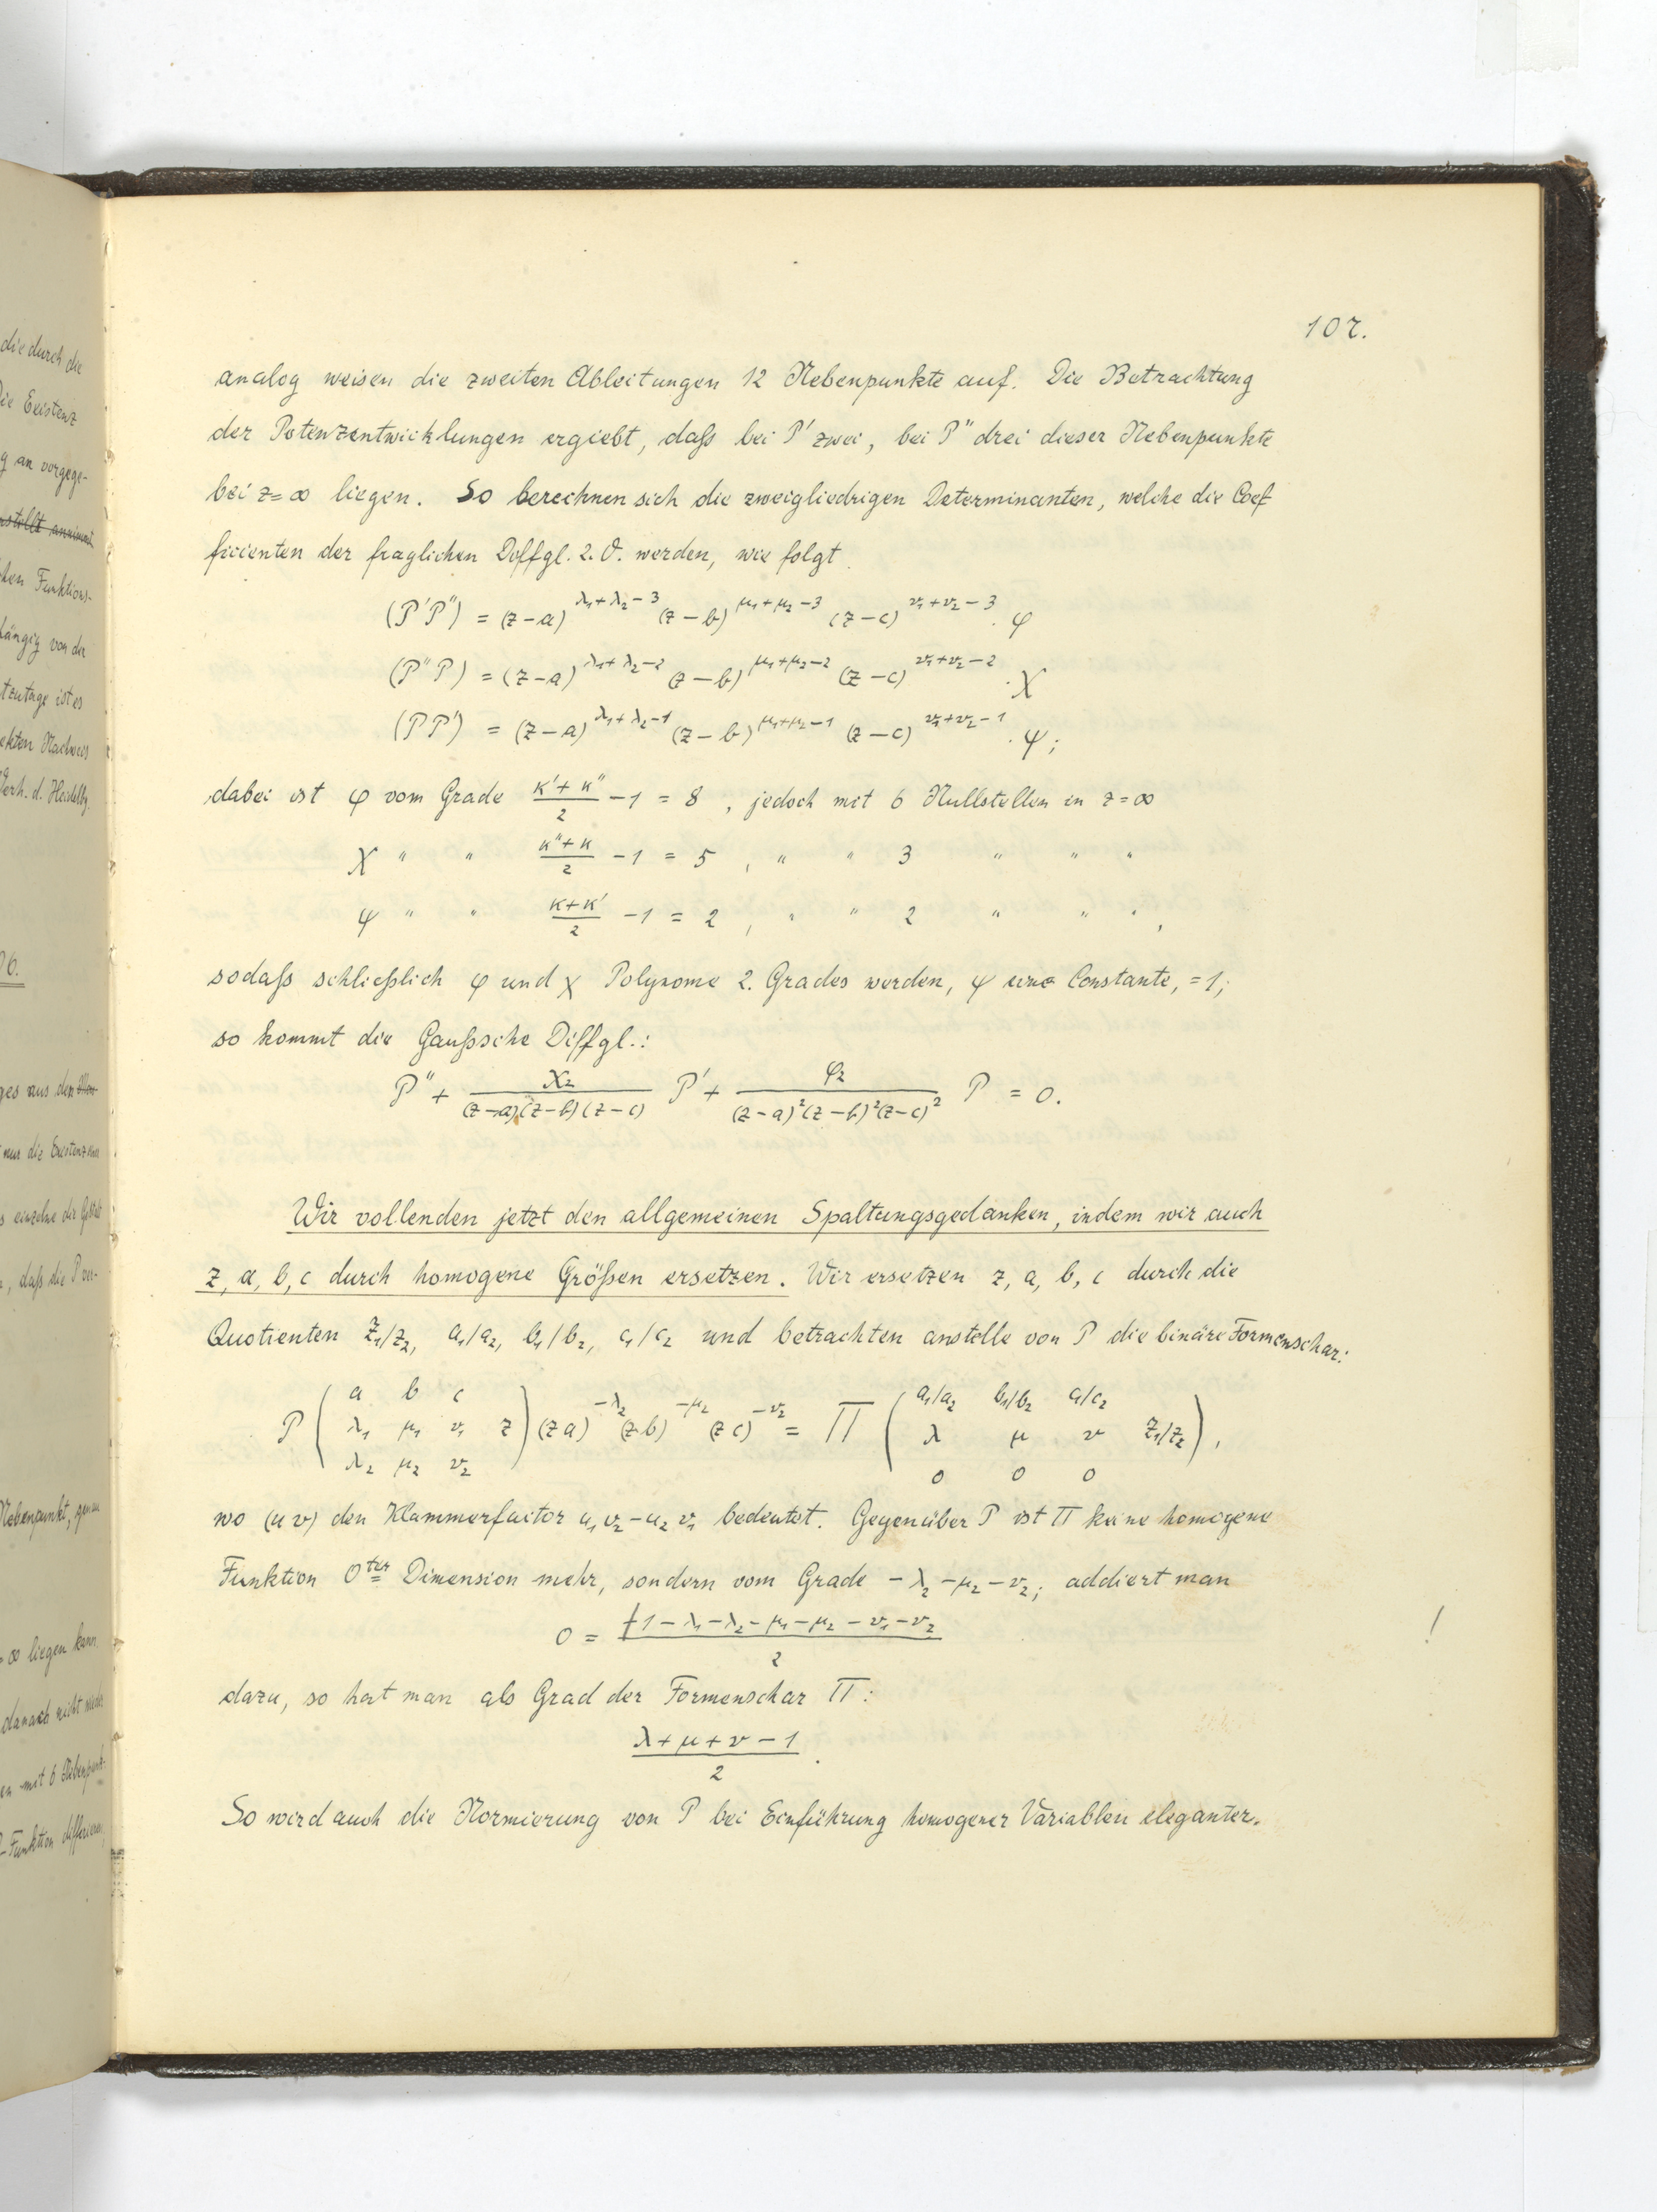 107.
analog weisen die zweiten Ableitungen 12 Nebenpunkte auf. Die Betrachtung
der Potenzentwicklungen ergiebt, daß bei P' zwei, bei P'' drei dieser Nebenpunkte
bei z=∞ liegen. So berechnen sich die zweigliedrigen Determinanten, welche die Coef
ficienten der fraglichen Diffgl. 2. O. werden, wie folgt
(P'P'') = (z-a)^{λ₁+λ₂-3} (z-b)^{μ₁+μ₂-3} (z-c)^{ν₁+ν₂-3} · φ
(P''P) = (z-a)^{λ₁+λ₂-2} (z-b)^{μ₁+μ₂-2} (z-c)^{ν₁+ν₂-2} · χ
(PP') = (z-a)^{λ₁+λ₂-1} (z-b)^{μ₁+μ₂-1} (z-c)^{ν₁+ν₂-1} · ψ;
dabei ist φ vom Grade (κ'+κ'')/2 - 1 = 8, jedoch mit 6 Nullstellen in z=∞
χ " " (κ''+κ)/2 - 1 = 5, " " 3 " " "
ψ " " (κ+κ')/2 - 1 = 2, " " 2 " " ",
sodaß schließlich φ und χ Polynome 2. Grades werden, ψ eine Constante, =1;
so kommt die Gaußsche Diffgl.:
P'' + χ₂/((z-a)(z-b)(z-c)) P' + φ₂/((z-a)²(z-b)²(z-c)²) P = 0.
Wir vollenden jetzt den allgemeinen Spaltungsgedanken, indem wir auch
z, a, b, c durch homogene Größen ersetzen. Wir ersetzen z, a, b, c durch die
Quotienten z₁/z₂, a₁/a₂, b₁/b₂, c₁/c₂ und betrachten anstelle von P die binäre Formenschar:
a b c a₁/a₂ b₁/b₂ c₁/c₂
P ( λ₁ μ₁ ν₁ z ) (za)^{-λ₂} (zb)^{-μ₂} (zc)^{-ν₂} = Π ( λ μ ν z₁/z₂ ),
λ₂ μ₂ ν₂ 0 0 0
wo (uv) den Klammerfactor u₁v₂-u₂v₁ bedeutet. Gegenüber P ist Π keine homogene
Funktion 0ter Dimension mehr, sondern vom Grade -λ₂-μ₂-ν₂; addiert man
0 = (+1-λ₁-λ₂-μ₁-μ₂-ν₁-ν₂)/2
!
dazu, so hat man als Grad der Formenschar Π:
(λ+μ+ν-1)/2.
So wird auch die Normierung von P bei Einführung homogener Variablen eleganter.